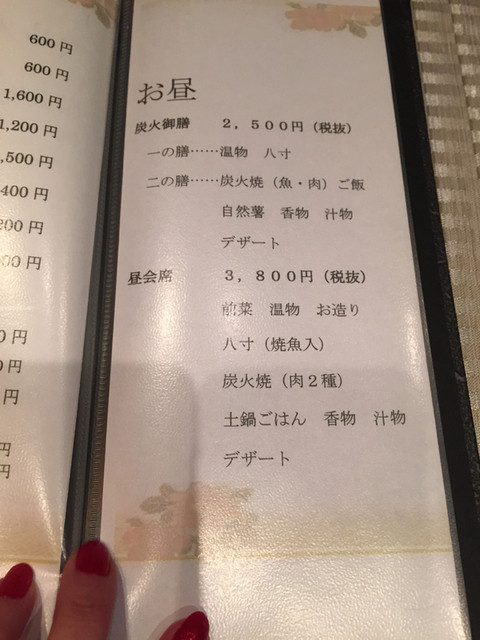 600円
600円
1,600円
1,200円
,500円
400円
200円
00円
0円
0円
円
円
円
お昼
炭火御膳　２，５００円（税抜）
一の膳……温物　八寸
二の膳……炭火焼（魚・肉）ご飯
自然薯　香物　汁物
デザート
昼会席　３，８００円（税抜）
前菜　温物　お造り
八寸（焼魚入）
炭火焼（肉２種）
土鍋ごはん　香物　汁物
デザート